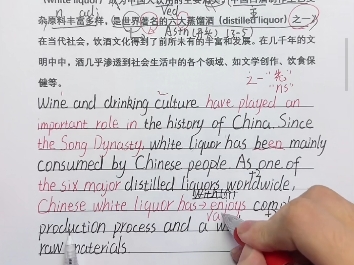 杂原料丰富多样，是世界著名的六大蒸馏酒（distilled liquor）之一。
在当代社会，饮酒文化得到了前所未有的丰富和发展。在几千年的文
明中中，酒几乎渗透到社会生活中的各个领域，如文学创作、饮食保
健等。
Wine and drinking culture have played an
important role in the history of China. Since
the Song Dynasty, white liquor has been mainly
consumed by Chinese people. As one of
the six major distilled liquors worldwide,
Chinese white liquor has → enjoys
production process and a
raw materials